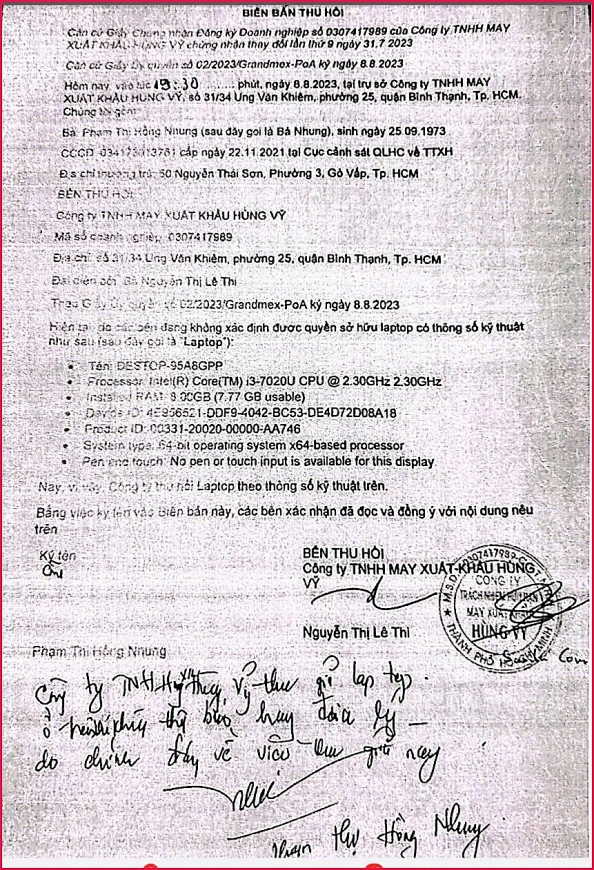 BIÊN BẢN THU HỒI
Căn cứ Giấy Chứng nhận Đăng ký Doanh nghiệp số 0307417989 của Công ty TNHH MAY
XUẤT KHẨU HÙNG VỸ chứng nhận thay đổi lần thứ 9 ngày 31.7 2023
Căn cứ Giấy Ủy quyền số 02/2023/Grandmex-PoA ký ngày 8.8.2023
Hôm nay, vào lúc 19:30 ........ phút, ngày 8.8.2023, tại trụ sở Công ty TNHH MAY
XUẤT KHẨU HÙNG VỸ, số 31/34 Ung Văn Khiêm, phường 25, quận Bình Thạnh, Tp. HCM.
Chúng tôi gồm:
Bà: Phạm Thị Hồng Nhung (sau đây gọi là Bà Nhung), sinh ngày 25.09.1973
CCCD: 034173013761 cấp ngày 22.11.2021 tại Cục cảnh sát QLHC về TTXH
Địa chỉ thường trú: 50 Nguyễn Thái Sơn, Phường 3, Gò Vấp, Tp. HCM
BÊN THU HỒI
Công ty TNHH MAY XUẤT KHẨU HÙNG VỸ
Mã số doanh nghiệp: 0307417989
Địa chỉ: số 31/34 Ung Văn Khiêm, phường 25, quận Bình Thạnh, Tp. HCM
Đại diện bởi: Bà Nguyễn Thị Lê Thi
Theo Giấy Ủy quyền số 02/2023/Grandmex-PoA ký ngày 8.8.2023
Hiện tại, do các bên đang không xác định được quyền sở hữu laptop có thông số kỹ thuật
như sau (sau đây gọi là "Laptop"):
• Tên: DESTOP-95A8GPP
• Processor: Intel(R) Core(TM) i3-7020U CPU @ 2.30GHz 2.30GHz
• Installed RAM: 8.00GB (7.77 GB usable)
• Device ID: 4E956521-DDF9-4042-BC53-DE4D72D08A18
• Product ID: 00331-20020-00000-AA746
• System type: 64-bit operating system x64-based processor
• Pen and touch: No pen or touch input is available for this display
Nay, vì vậy, Công ty thu hồi Laptop theo thông số kỹ thuật trên.
Bằng việc ký tên vào Biên bản này, các bên xác nhận đã đọc và đồng ý với nội dung nêu
trên
Ký tên
BÊN THU HỒI
Công ty TNHH MAY XUẤT KHẨU HÙNG
VỸ
M.S.D.N: 0307417989
CÔNG TY
TRÁCH NHIỆM HỮU HẠN
MAY XUẤT KHẨU
HÙNG VỸ
THÀNH PHỐ HỒ CHÍ MINH
Nguyễn Thị Lê Thi
Phạm Thị Hồng Nhung
Công ty TNHH Hùng Vỹ thu giữ lap top
ở thông báo hay
do chính đáng về việc thu giữ này
Phạm Thị Hồng Nhung